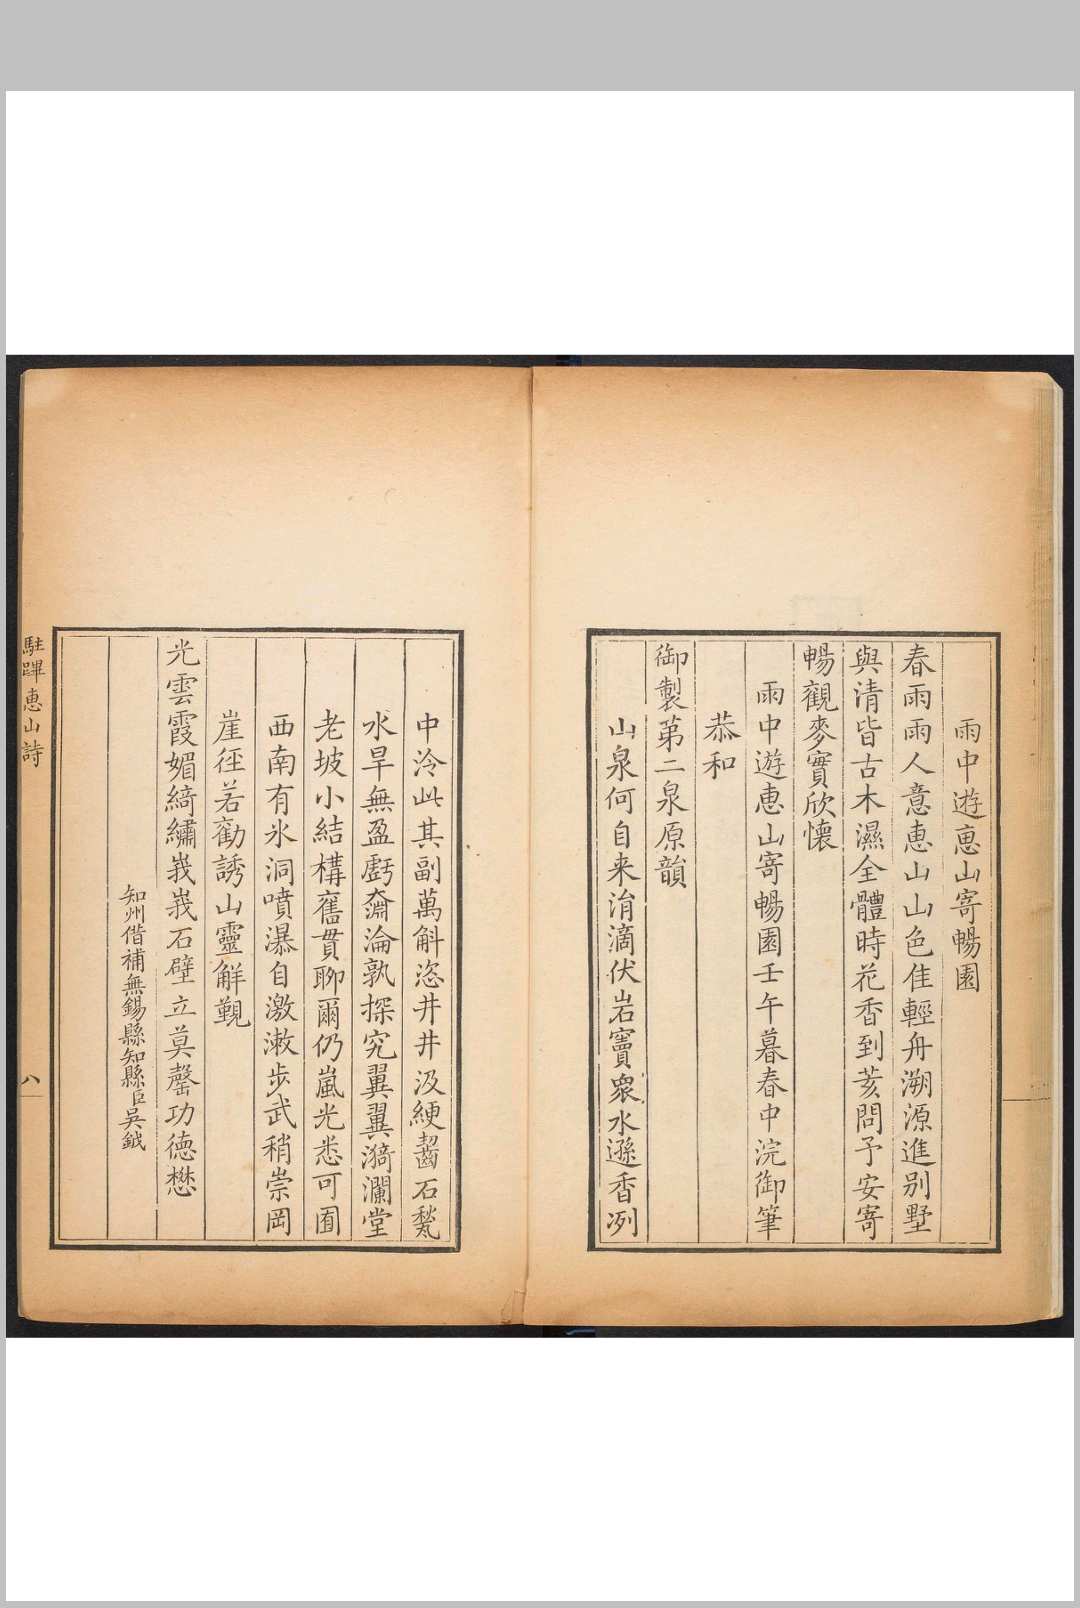 雨中遊惠山寄暢園
春雨雨人意惠山山色佳輕舟溯源進別墅
與清皆古木濕全體時花香到荄問予安寄
暢觀麥實欣懷
雨中遊惠山寄暢園壬午暮春中浣御筆
恭和
御製第二泉原韻
山泉何自来涓滴伏岩竇衆水遜香冽
中泠此其副萬斛恣井井汲綆齧石甃
水旱無盈虧奫淪孰探究翼翼漪瀾堂
老坡小結構舊貫聊爾仍嵐光悉可囿
西南有氷洞噴瀑自激漱步武稍崇岡
崖徑若勸誘山靈解覲
光雲霞媚綺繡峩峩石壁立莫罄功德懋
知州借補無錫縣知縣臣吳鉞
駐蹕惠山詩
八